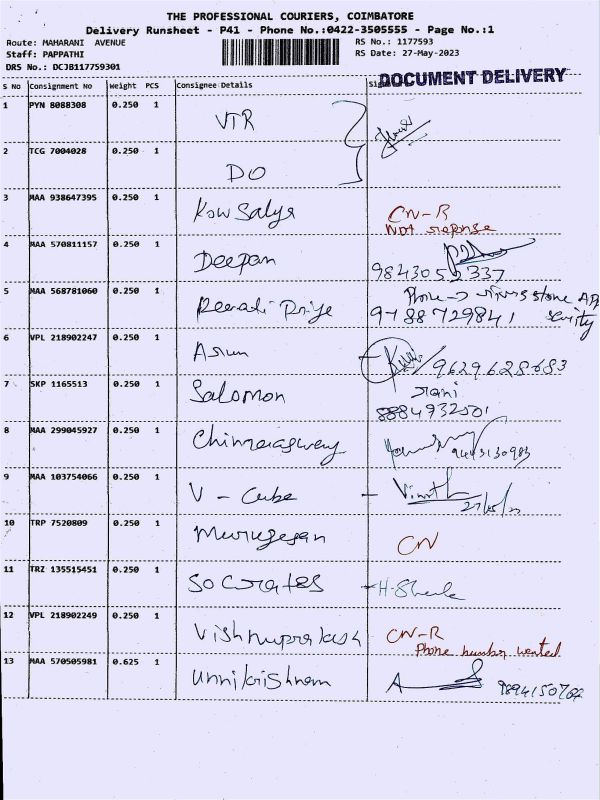 THE PROFESSIONAL COURIERS, COIMBATORE
Delivery Runsheet - P41 - Phone No.:0422-3505555 - Page No.:1
Route: MAHARANI AVENUE
RS No.: 1177593
Staff: PAPPATHI
RS Date: 27-May-2023
DRS No.: DCJB117759301
DOCUMENT DELIVERY
S No Consignment No Weight PCS Consignee Details
1 PYN 8088308 0.250 1 VTR
2 TCG 7004028 0.250 1 DO
3 MAA 938647395 0.250 1 Kowsalya CN-R
Not reponse
4 MAA 570811157 0.250 1 Deepan
9843052337
5 MAA 568781060 0.250 1 Priye Phone
9788729841
6 VPL 218902247 0.250 1 Arun 9629628683
7 SKP 1165513 0.250 1 Salomon rani
8884932501
8 MAA 299045927 0.250 1
9443130983
9 MAA 103754066 0.250 1 V - Cube - Vinoth
10 TRP 7520809 0.250 1 Murugesan CN
11 TRZ 135515451 0.250 1 Socrates
12 VPL 218902249 0.250 1 Vishnuprakash CN-R
Phone number wanted
13 MAA 570505981 0.625 1 Unnikrishnam